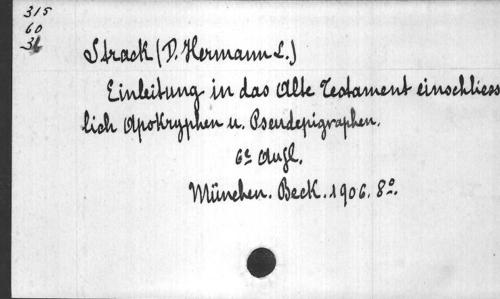 315
60
36
Strack (D. Hermann L.)
Einleitung in das Alte Testament einschliess
lich Apokryphen u. Pseudepigraphen.
6e Aufl.
München. Beck. 1906. 8o.